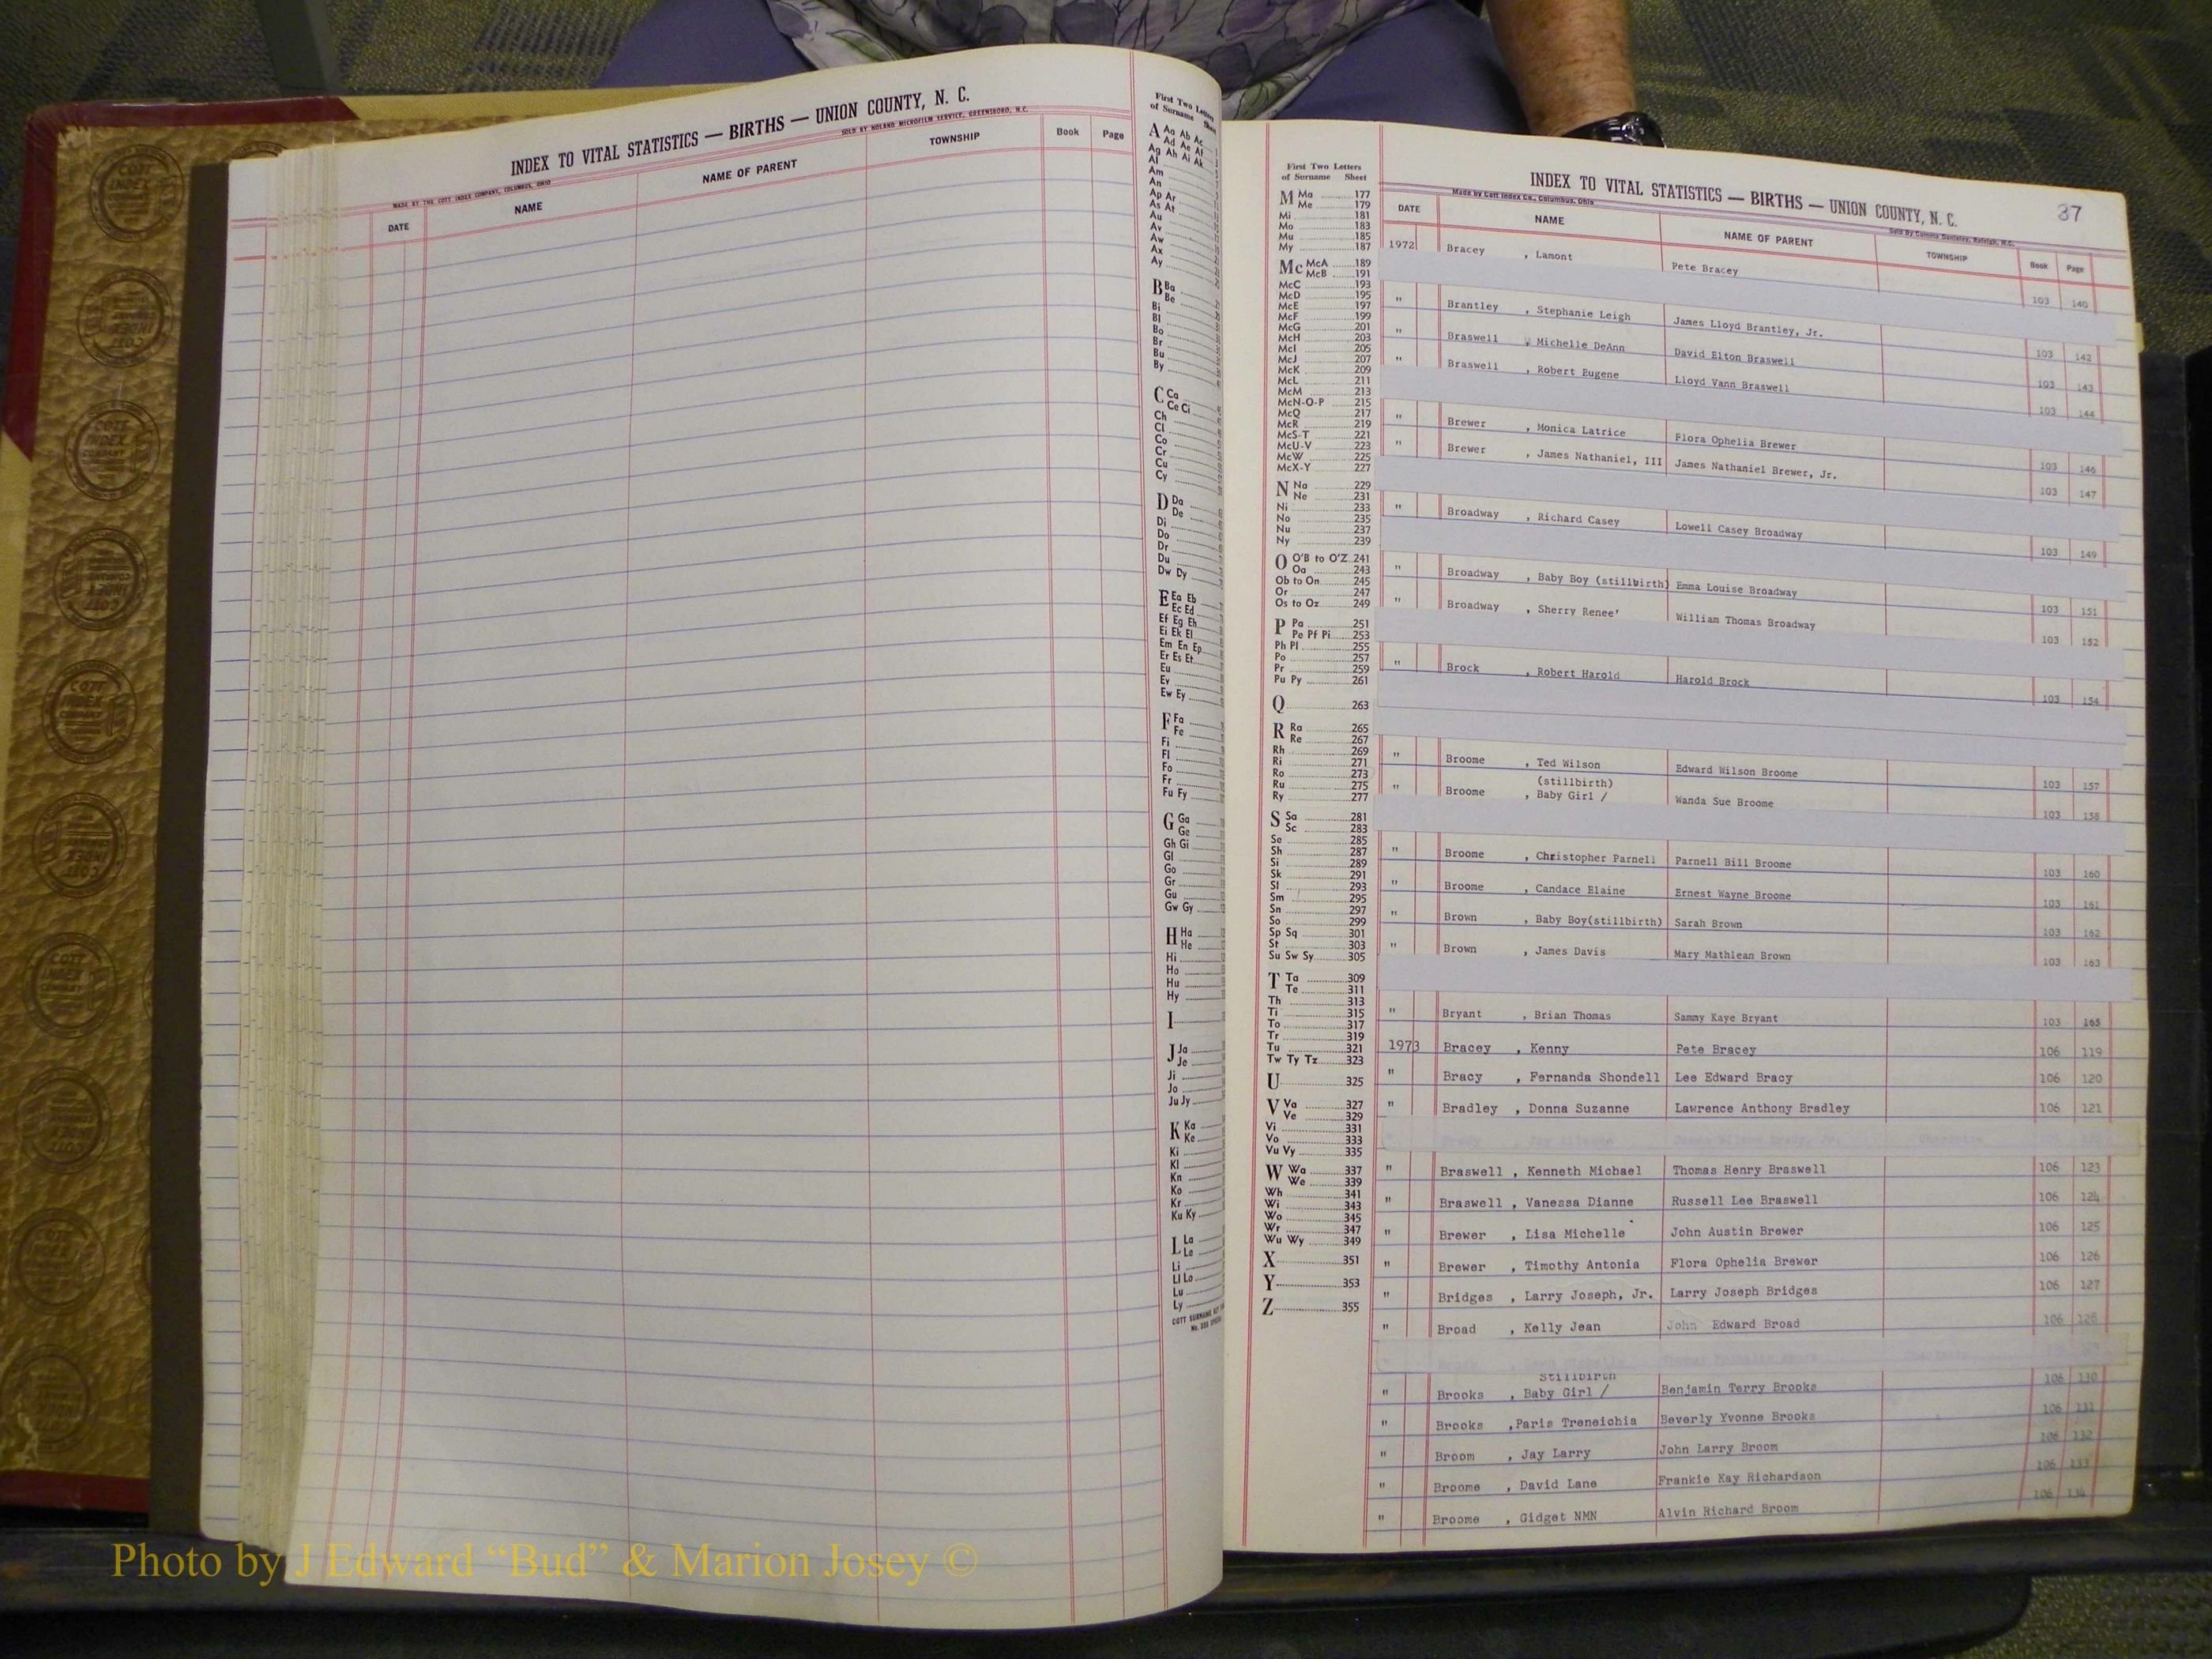 INDEX TO VITAL STATISTICS — BIRTHS — UNION COUNTY, N. C.
MADE BY THE COTT INDEX COMPANY, COLUMBUS, OHIO SOLD BY NOLAND MICROFILM SERVICE, GREENSBORO, N.C.
DATE NAME NAME OF PARENT TOWNSHIP Book Page
First Two Letters
of Surname
A Aa Ab Ac
Ad Ae Af
Ag Ah Ai Ak
Al
Am
An
Ap Ar
As At
Au
Av
Aw
Ax
Ay
B Ba
Be
Bi
Bl
Bo
Br
Bu
By
C Ca
Ce Ci
Ch
Cl
Co
Cr
Cu
Cy
D Da
De
Di
Do
Dr
Du
Dw Dy
E Ea Eb
Ec Ed
Ef Eg Eh
Ei Ek El
Em En Ep
Er Es Et
Eu
Ev
Ew Ey
F Fa
Fe
Fi
Fl
Fo
Fr
Fu Fy
G Ga
Ge
Gh Gi
Gl
Go
Gr
Gu
Gw Gy
H Ha
He
Hi
Ho
Hu
Hy
I
J Ja
Je
Ji
Jo
Ju Jy
K Ka
Ke
Ki
Kl
Kn
Ko
Kr
Ku Ky
L La
Le
Li
Ll Lo
Lu
Ly
First Two Letters
of Surname Sheet
M Ma 177
Me 179
Mi 181
Mo 183
Mu 185
My 187
Mc McA 189
McB 191
McC 193
McD 195
McE 197
McF 199
McG 201
McH 203
McI 205
McJ 207
McK 209
McL 211
McM 213
McN-O-P 215
McQ 217
McR 219
McS-T 221
McU-V 223
McW 225
McX-Y 227
N Na 229
Ne 231
Ni 233
No 235
Nu 237
Ny 239
O O'B to O'Z 241
Oa 243
Ob to On 245
Or 247
Os to Oz 249
P Pa 251
Pe Pf Pi 253
Ph Pl 255
Po 257
Pr 259
Pu Py 261
Q 263
R Ra 265
Re 267
Rh 269
Ri 271
Ro 273
Ru 275
Ry 277
S Sa 281
Sc 283
Se 285
Sh 287
Si 289
Sk 291
Sl 293
Sm 295
Sn 297
So 299
Sp Sq 301
St 303
Su Sw Sy 305
T Ta 309
Te 311
Th 313
Ti 315
To 317
Tr 319
Tu 321
Tw Ty Tz 323
U 325
V Va 327
Ve 329
Vi 331
Vo 333
Vu Vy 335
W Wa 337
We 339
Wh 341
Wi 343
Wo 345
Wr 347
Wu Wy 349
X 351
Y 353
Z 355
INDEX TO VITAL STATISTICS — BIRTHS — UNION COUNTY, N. C. 87
Made by Cott Index Co., Columbus, Ohio
DATE NAME NAME OF PARENT TOWNSHIP Book Page
1972 Bracey , Lamont Pete Bracey 103 140
" Brantley , Stephanie Leigh James Lloyd Brantley, Jr. 103 142
" Braswell , Michelle DeAnn David Elton Braswell 103 143
" Braswell , Robert Eugene Lloyd Vann Braswell 103 144
" Brewer , Monica Latrice Flora Ophelia Brewer 103 146
" Brewer , James Nathaniel, III James Nathaniel Brewer, Jr. 103 147
" Broadway , Richard Casey Lowell Casey Broadway 103 149
" Broadway , Baby Boy (stillbirth) Emma Louise Broadway 103 151
" Broadway , Sherry Renee' William Thomas Broadway 103 152
" Brock , Robert Harold Harold Brock 103 154
" Broome , Ted Wilson Edward Wilson Broome 103 157
(stillbirth)
" Broome , Baby Girl / Wanda Sue Broome 103 158
" Broome , Christopher Parnell Parnell Bill Broome 103 160
" Broome , Candace Elaine Ernest Wayne Broome 103 161
" Brown , Baby Boy(stillbirth) Sarah Brown 103 162
" Brown , James Davis Mary Mathlean Brown 103 163
" Bryant , Brian Thomas Sammy Kaye Bryant 103 165
1973 Bracey , Kenny Pete Bracey 106 119
" Bracy , Fernanda Shondell Lee Edward Bracy 106 120
" Bradley , Donna Suzanne Lawrence Anthony Bradley 106 121
" Braswell , Kenneth Michael Thomas Henry Braswell 106 123
" Braswell , Vanessa Dianne Russell Lee Braswell 106 124
" Brewer , Lisa Michelle John Austin Brewer 106 125
" Brewer , Timothy Antonia Flora Ophelia Brewer 106 126
" Bridges , Larry Joseph, Jr. Larry Joseph Bridges 106 127
" Broad , Kelly Jean John Edward Broad 106 128
Stillbirth
" Brooks , Baby Girl / Benjamin Terry Brooks 106 130
" Brooks ,Paris Treneichia Beverly Yvonne Brooks 106 131
" Broom , Jay Larry John Larry Broom 106 132
" Broome , David Lane Frankie Kay Richardson 106 133
" Broome , Gidget NMN Alvin Richard Broom 106 134
Photo by J Edward “Bud” & Marion Josey ©